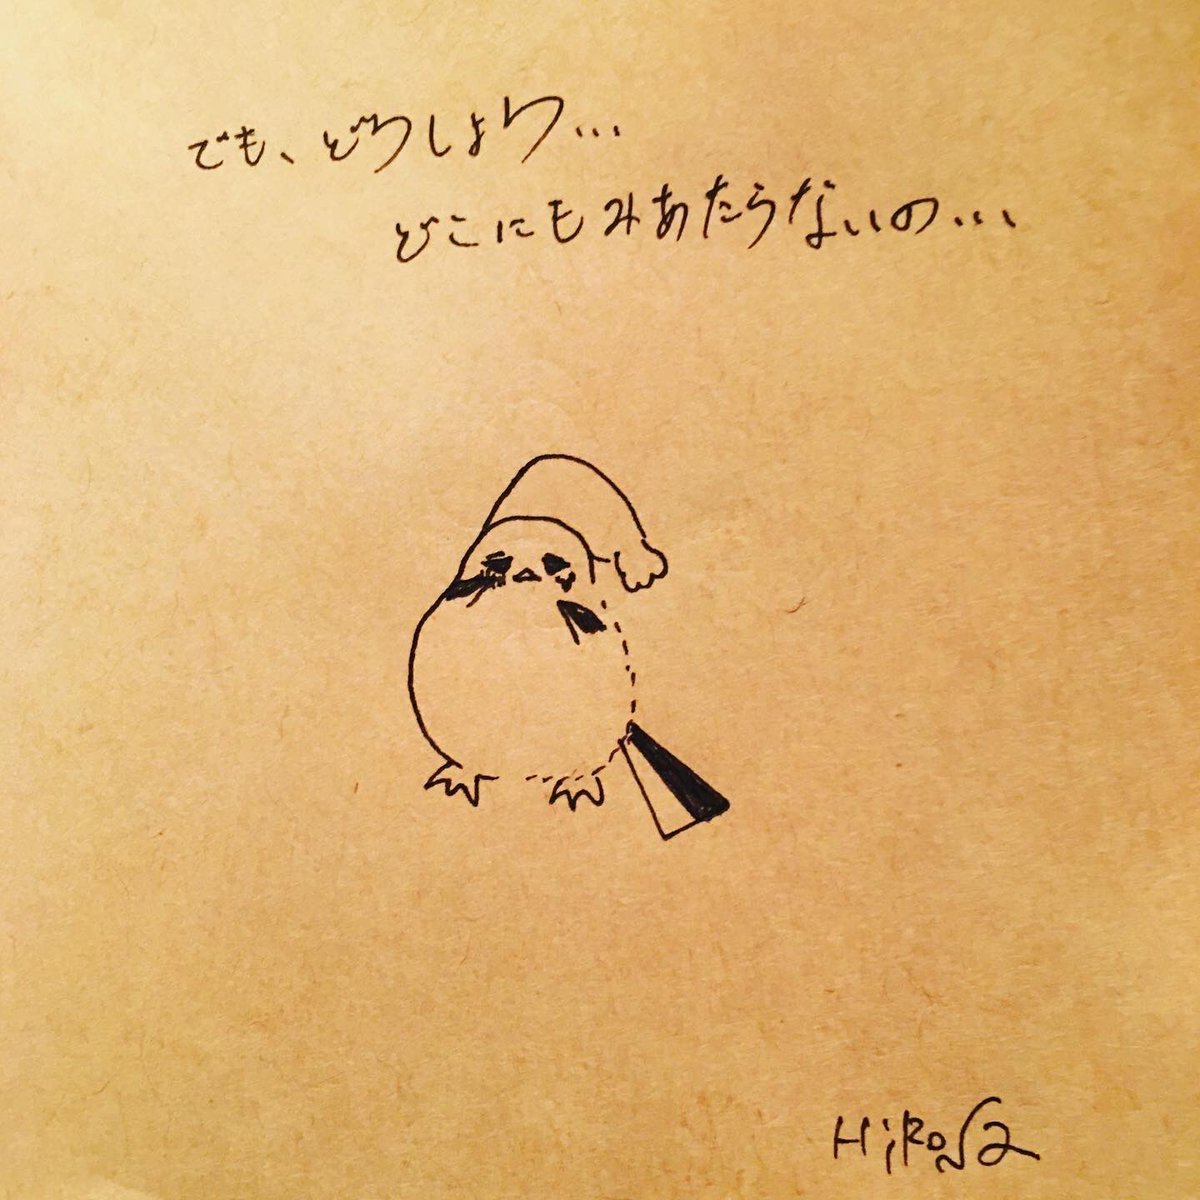 でも、どうしよう...
どこにもみあたらないの...